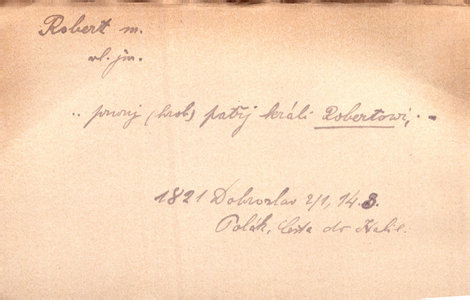 Robert m.
vl. jm.
„ prwnj (hrob) patřj králi Robertowi, . –
1821 Dobroslav 2/1, 14 3.
Polák, Cesta do Italie.